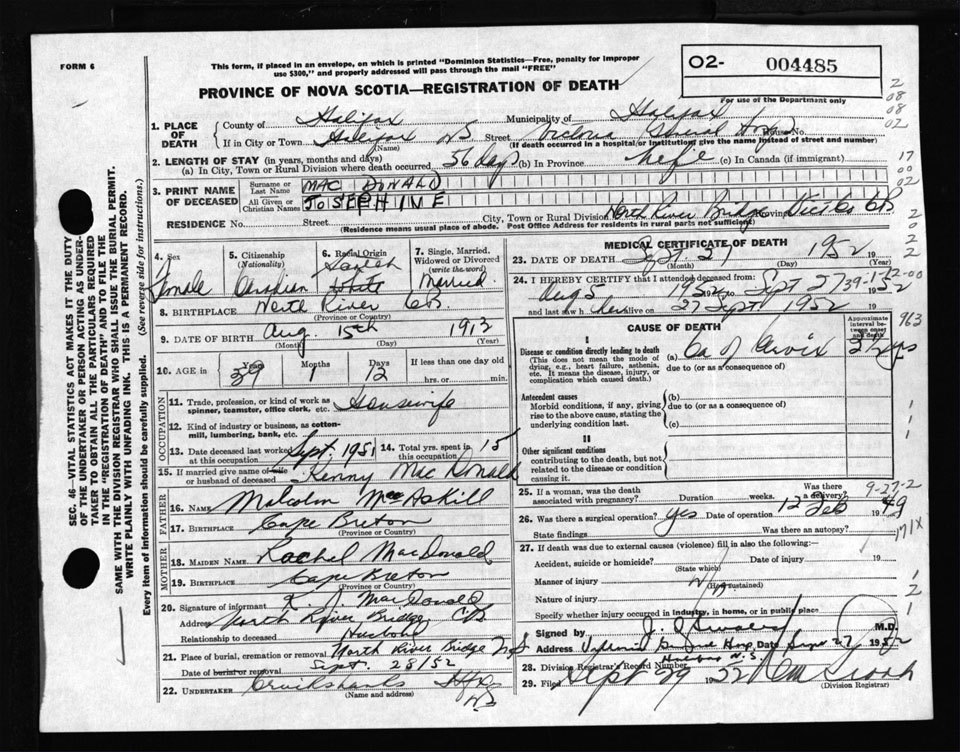 FORM 6
This form, if placed in an envelope, on which is printed "Dominion Statistics—Free, penalty for improper
use $300," and properly addressed will pass through the mail "FREE"
PROVINCE OF NOVA SCOTIA—REGISTRATION OF DEATH
O2- 004485
For use of the Department only
2
08
08
02
1. PLACE OF DEATH
County of Halifax Municipality of Halifax
If in City or Town Halifax NS Street Victoria General Hosp House No.
(Name) (If death occurred in a hospital or institution, give the name instead of street and number)
2. LENGTH OF STAY (in years, months and days)
(a) In City, Town or Rural Division where death occurred 56 days (b) In Province life (c) In Canada (if immigrant)
17
00
02
3. PRINT NAME OF DECEASED
Surname or Last Name MAC DONALD
All Given or Christian Names JOSEPHINE
RESIDENCE No. Street City, Town or Rural Division North River Bridge Province Vict Co CB
(Residence means usual place of abode. Post Office Address for residents in rural parts not sufficient)
4. Sex Female
5. Citizenship (Nationality) Canadian
6. Racial Origin Scotch White
7. Single, Married, Widowed or Divorced (write the word) Married
8. BIRTHPLACE North River CB
(Province or Country)
9. DATE OF BIRTH Aug 15th 1912
(Month) (Day) (Year)
10. AGE in Years 39 Months 1 Days 12 If less than one day old
hrs. or min.
OCCUPATION
11. Trade, profession, or kind of work as spinner, teamster, office clerk, etc. Housewife
12. Kind of industry or business, as cotton-mill, lumbering, bank, etc.
13. Date deceased last worked at this occupation Sept. 1951
14. Total yrs. spent in this occupation 15
15. If married give name of wife or husband of deceased Kenny MacDonald
FATHER
16. NAME Malcolm MacAskill
17. BIRTHPLACE Cape Breton
(Province or Country)
MOTHER
18. MAIDEN NAME Rachel MacDonald
19. BIRTHPLACE Cape Breton
(Province or Country)
20. Signature of informant K. J. MacDonald
Address North River Bridge CB
Relationship to deceased Husband
21. Place of burial, cremation or removal North River Bridge NS
Date of burial or removal Sept. 28/52
22. UNDERTAKER Cruikshanks Hfx NS
(Name and address)
MEDICAL CERTIFICATE OF DEATH
23. DATE OF DEATH Sept. 27 1952
(Month) (Day) (Year)
24. I HEREBY CERTIFY that I attended deceased from:
Aug 5 1952 to Sept 27 1952
and last saw her alive on 27 Sept 1952
CAUSE OF DEATH
Approximate interval between onset and death
I
Disease or condition directly leading to death (a) Ca of Cervix
(This does not mean the mode of dying, e.g., heart failure, asthenia, etc. It means the disease, injury, or complication which caused death.)
due to (or as a consequence of)
Antecedent causes (b)
Morbid conditions, if any, giving rise to the above cause, stating the underlying condition last.
due to (or as a consequence of)
(c)
II
Other significant conditions
contributing to the death, but not related to the disease or condition causing it.
963
25. If a woman, was the death associated with pregnancy? Duration weeks. Was there a delivery?
26. Was there a surgical operation? yes Date of operation 12 Feb 1949
State findings Was there an autopsy?
171X
27. If death was due to external causes (violence) fill in also the following:
Accident, suicide or homicide? Date of injury 19
(State which)
Manner of injury
(How sustained)
Nature of injury
Specify whether injury occurred in industry, in home, or in public place
Signed by M.D.
Address Victoria General Hosp. Date Sept 27 1952
Halifax N.S.
28. Division Registrar's Record Number
29. Filed Sept 29 1952
(Division Registrar)
SEC. 46—VITAL STATISTICS ACT MAKES IT THE DUTY
OF THE UNDERTAKER OR PERSON ACTING AS UNDER-
TAKER TO OBTAIN ALL THE PARTICULARS REQUIRED
IN THE "REGISTRATION OF DEATH" AND TO FILE THE
SAME WITH THE DIVISION REGISTRAR WHO SHALL ISSUE THE BURIAL PERMIT.
WRITE PLAINLY WITH UNFADING INK. THIS IS A PERMANENT RECORD.
Every item of information should be carefully supplied. (See reverse side for instructions.)